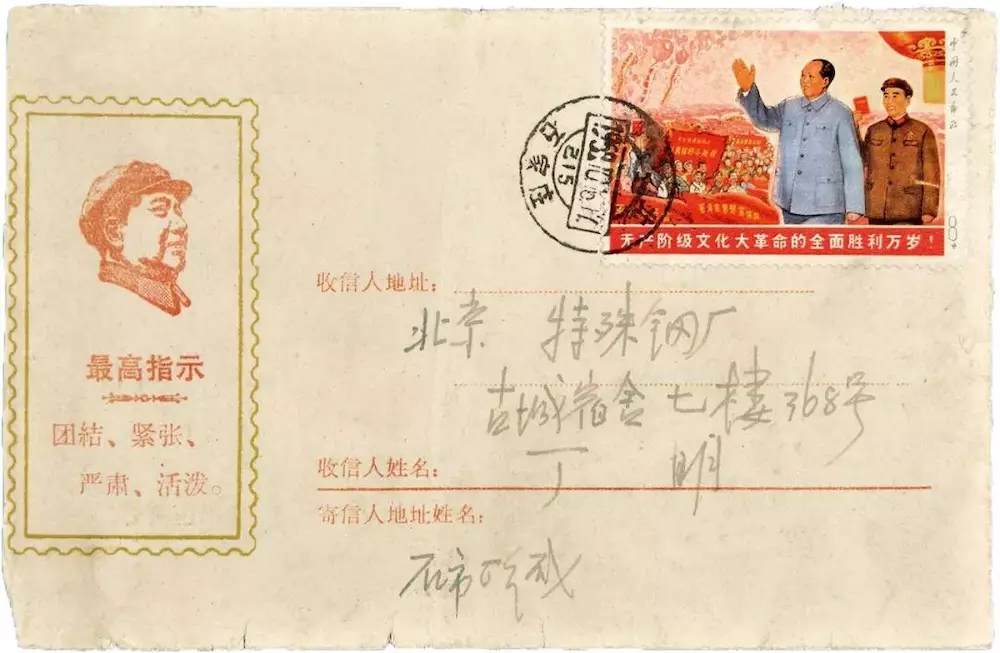 最高指示
团結、紧张、
严肃、活泼。
中国人民邮政
8
无产阶级文化大革命的全面胜利万岁！
石家庄
215
收信人地址：
北京 特殊钢厂
古城宿舍七楼368号
收信人姓名：
丁 明
寄信人地址姓名：
石市